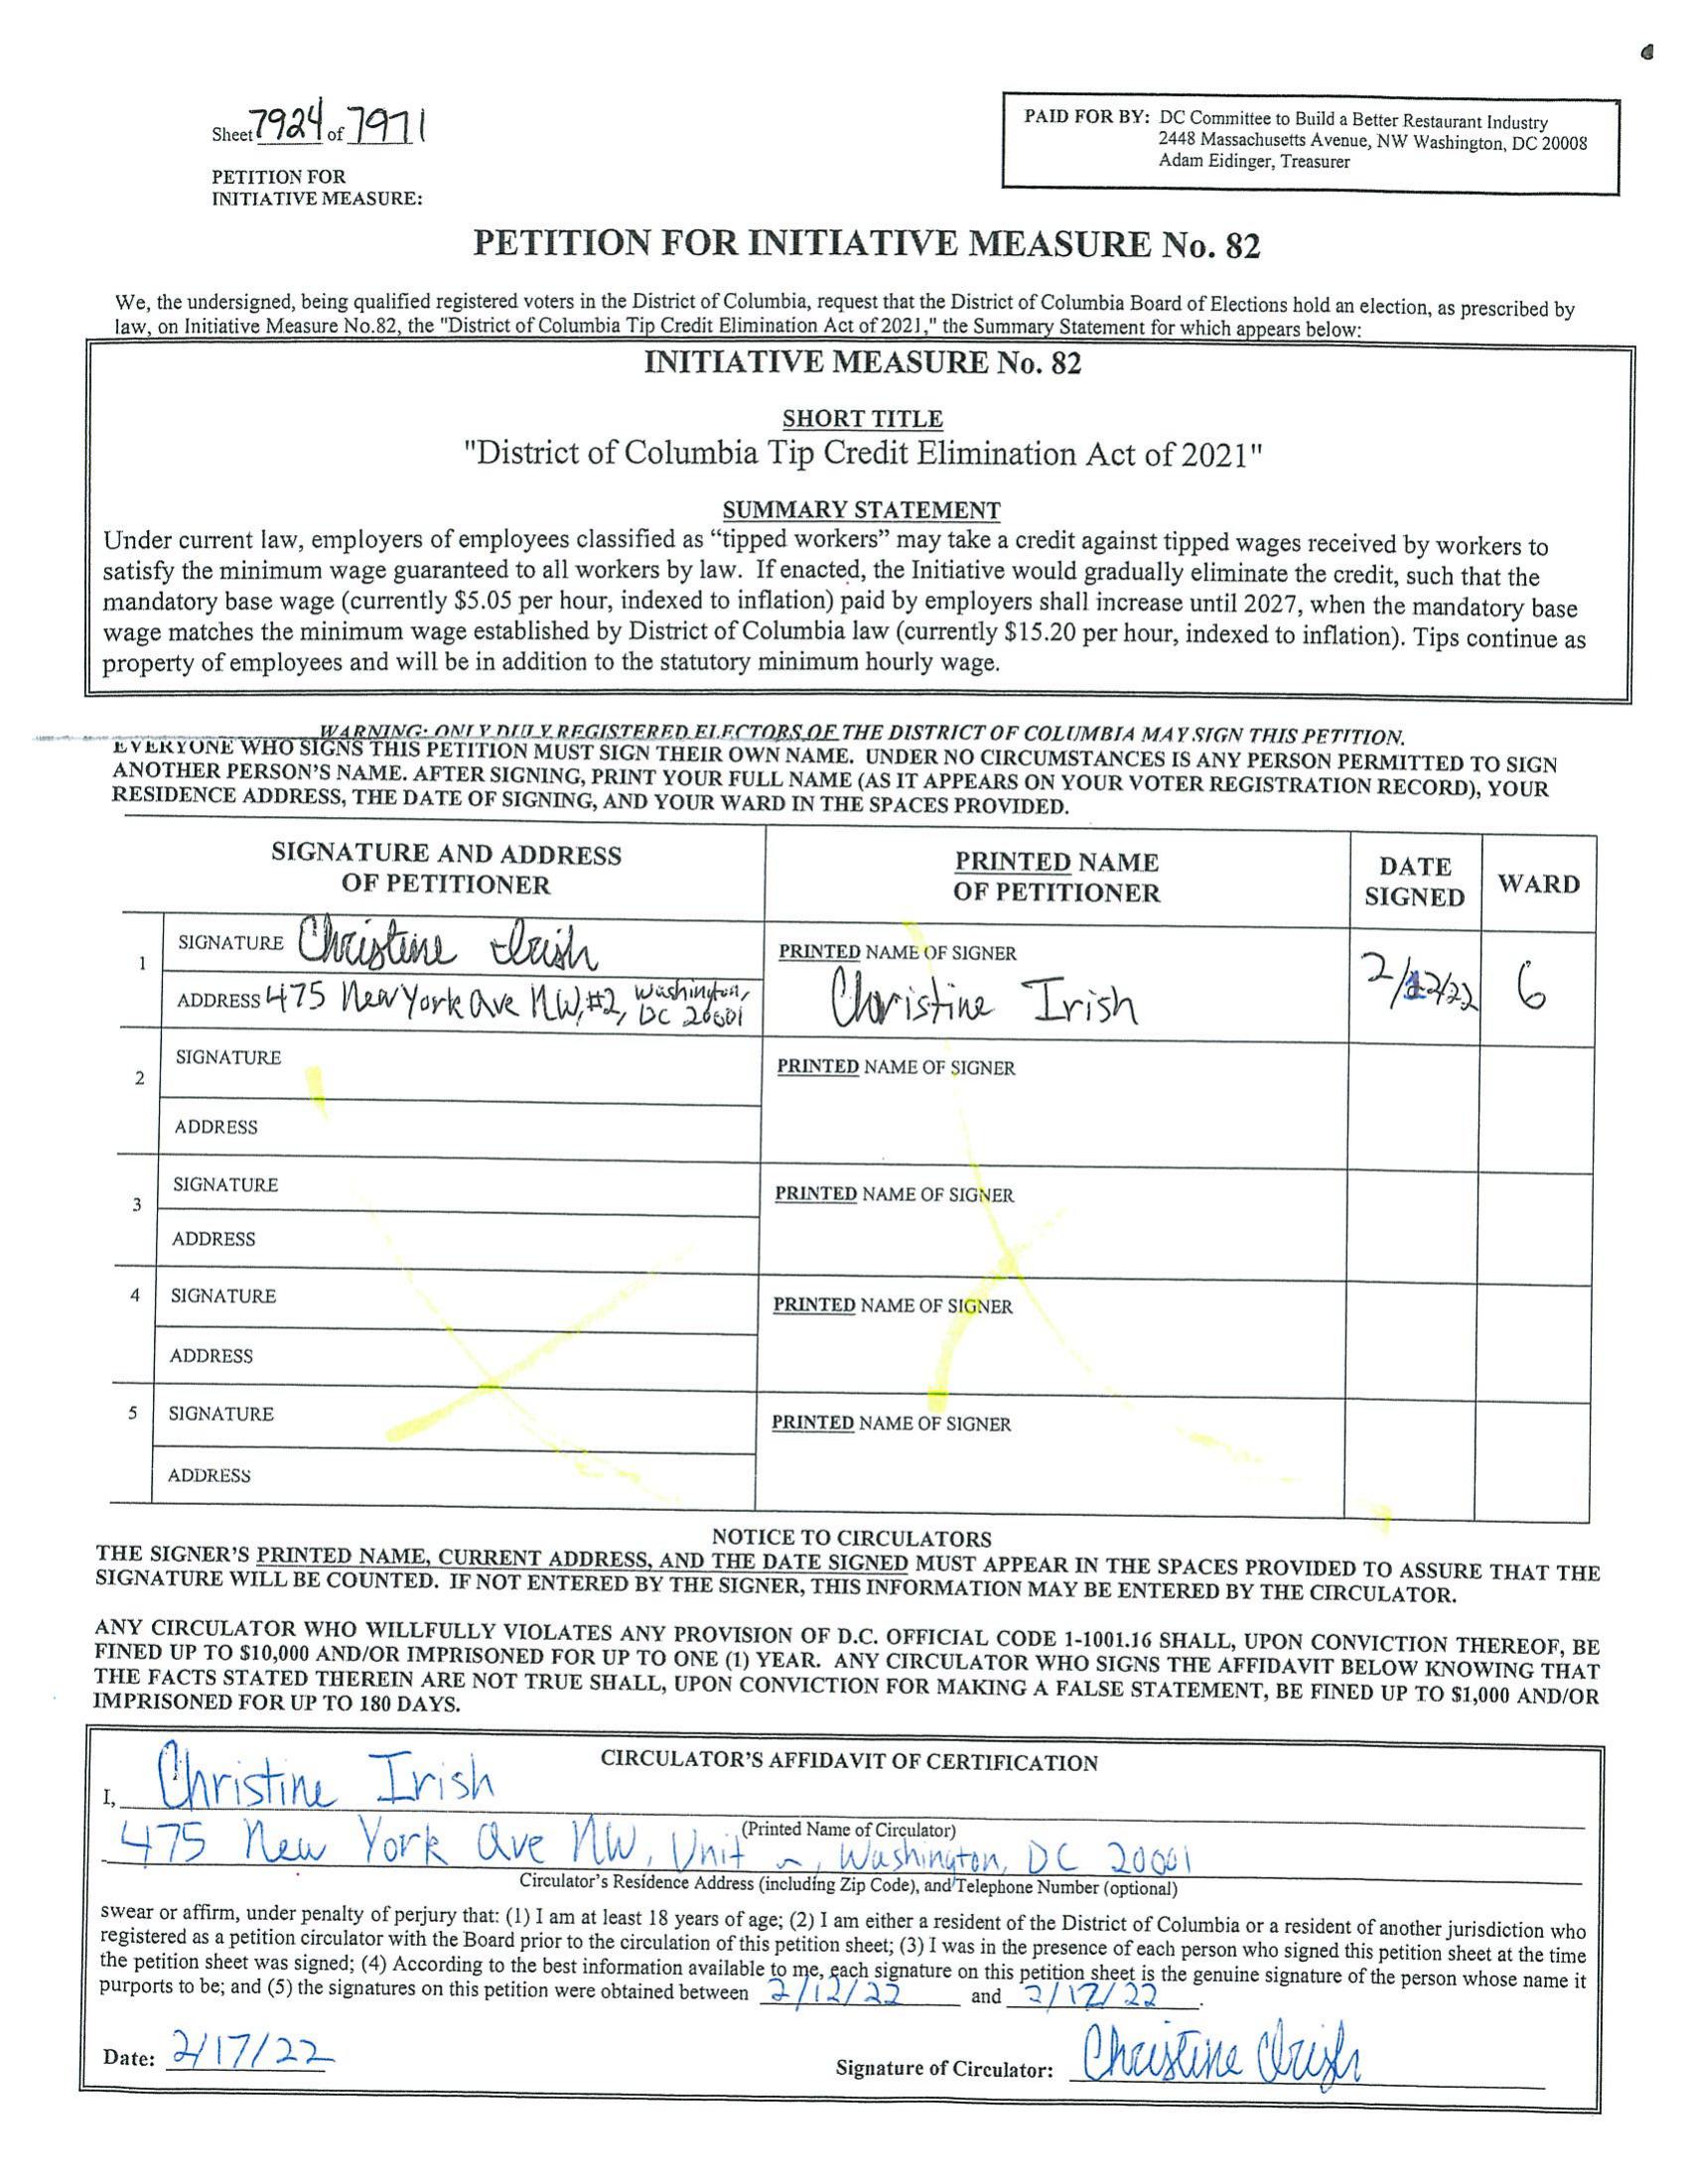 Sheet 7924 of 7971
PETITION FOR
INITIATIVE MEASURE:
PAID FOR BY: DC Committee to Build a Better Restaurant Industry
2448 Massachusetts Avenue, NW Washington, DC 20008
Adam Eidinger, Treasurer
PETITION FOR INITIATIVE MEASURE No. 82
We, the undersigned, being qualified registered voters in the District of Columbia, request that the District of Columbia Board of Elections hold an election, as prescribed by
law, on Initiative Measure No.82, the "District of Columbia Tip Credit Elimination Act of 2021," the Summary Statement for which appears below:
INITIATIVE MEASURE No. 82
SHORT TITLE
"District of Columbia Tip Credit Elimination Act of 2021"
SUMMARY STATEMENT
Under current law, employers of employees classified as “tipped workers” may take a credit against tipped wages received by workers to
satisfy the minimum wage guaranteed to all workers by law. If enacted, the Initiative would gradually eliminate the credit, such that the
mandatory base wage (currently $5.05 per hour, indexed to inflation) paid by employers shall increase until 2027, when the mandatory base
wage matches the minimum wage established by District of Columbia law (currently $15.20 per hour, indexed to inflation). Tips continue as
property of employees and will be in addition to the statutory minimum hourly wage.
WARNING: ONLY DULY REGISTERED ELECTORS OF THE DISTRICT OF COLUMBIA MAY SIGN THIS PETITION.
EVERYONE WHO SIGNS THIS PETITION MUST SIGN THEIR OWN NAME. UNDER NO CIRCUMSTANCES IS ANY PERSON PERMITTED TO SIGN
ANOTHER PERSON'S NAME. AFTER SIGNING, PRINT YOUR FULL NAME (AS IT APPEARS ON YOUR VOTER REGISTRATION RECORD), YOUR
RESIDENCE ADDRESS, THE DATE OF SIGNING, AND YOUR WARD IN THE SPACES PROVIDED.
SIGNATURE AND ADDRESS
OF PETITIONER
PRINTED NAME
OF PETITIONER
DATE
SIGNED
WARD
1
SIGNATURE Christine Irish
ADDRESS 475 New York Ave NW, #2, Washington,
DC 20001
PRINTED NAME OF SIGNER
Christine Irish
2/12/22
6
2
SIGNATURE
ADDRESS
PRINTED NAME OF SIGNER
3
SIGNATURE
ADDRESS
PRINTED NAME OF SIGNER
4
SIGNATURE
ADDRESS
PRINTED NAME OF SIGNER
5
SIGNATURE
ADDRESS
PRINTED NAME OF SIGNER
NOTICE TO CIRCULATORS
THE SIGNER'S PRINTED NAME, CURRENT ADDRESS, AND THE DATE SIGNED MUST APPEAR IN THE SPACES PROVIDED TO ASSURE THAT THE
SIGNATURE WILL BE COUNTED. IF NOT ENTERED BY THE SIGNER, THIS INFORMATION MAY BE ENTERED BY THE CIRCULATOR.
ANY CIRCULATOR WHO WILLFULLY VIOLATES ANY PROVISION OF D.C. OFFICIAL CODE 1-1001.16 SHALL, UPON CONVICTION THEREOF, BE
FINED UP TO $10,000 AND/OR IMPRISONED FOR UP TO ONE (1) YEAR. ANY CIRCULATOR WHO SIGNS THE AFFIDAVIT BELOW KNOWING THAT
THE FACTS STATED THEREIN ARE NOT TRUE SHALL, UPON CONVICTION FOR MAKING A FALSE STATEMENT, BE FINED UP TO $1,000 AND/OR
IMPRISONED FOR UP TO 180 DAYS.
CIRCULATOR'S AFFIDAVIT OF CERTIFICATION
I, Christine Irish
(Printed Name of Circulator)
475 New York Ave NW, Unit , Washington, DC 20001
Circulator's Residence Address (including Zip Code), and Telephone Number (optional)
swear or affirm, under penalty of perjury that: (1) I am at least 18 years of age; (2) I am either a resident of the District of Columbia or a resident of another jurisdiction who
registered as a petition circulator with the Board prior to the circulation of this petition sheet; (3) I was in the presence of each person who signed this petition sheet at the time
the petition sheet was signed; (4) According to the best information available to me, each signature on this petition sheet is the genuine signature of the person whose name it
purports to be; and (5) the signatures on this petition were obtained between 2/12/22 and 2/12/22.
Date: 2/17/22
Signature of Circulator: Christine Irish